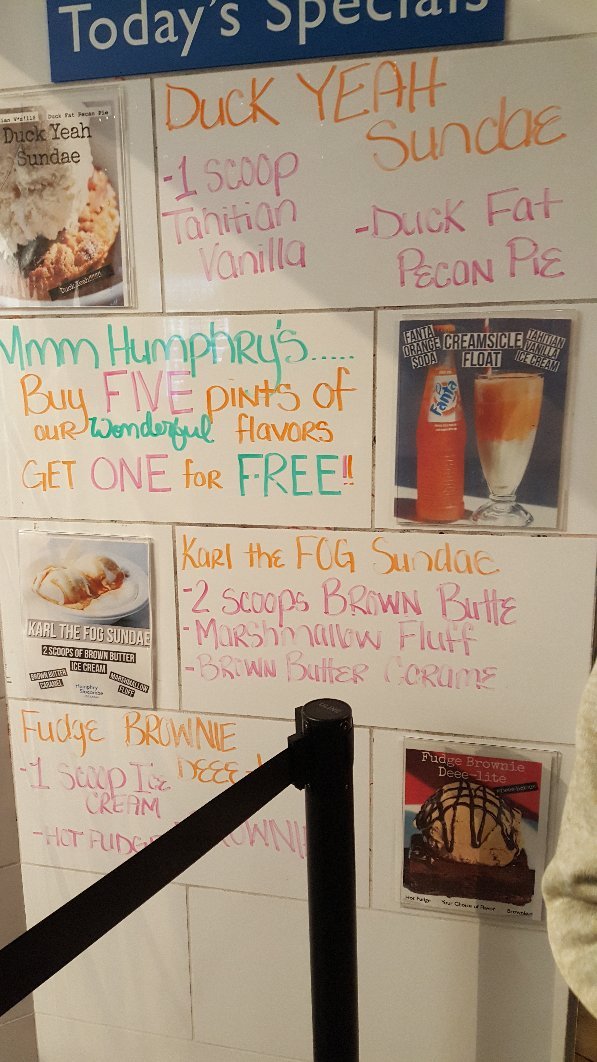 Today's Specials
Duck Fat Pecan Pie
Duck Yeah
Sundae
Duck YEAH
Sundae
-1 scoop
Tahitian
Vanilla
-Duck Fat
Pecan Pie
Mmm Humphry's.....
Buy FIVE pints of
our wonderful flavors
GET ONE for FREE!!
FANTA
ORANGE
SODA
CREAMSICLE
FLOAT
TAHITIAN
VANILLA
ICE CREAM
Fanta
KARL THE FOG SUNDAE
2 SCOOPS OF BROWN BUTTER
ICE CREAM
BROWN BUTTER
CARAMEL
MARSHMALLOW
FLUFF
Humphry
Slocombe
Karl the FOG Sundae
-2 scoops BROWN Butte
-Marshmallow Fluff
-BROWN Butter Carame
Fudge BROWNIE
DEEE-
-1 Scoop Ice
CREAM
-HOT FUDGE BROWNI
Fudge Brownie
Deee-lite
Hot Fudge Your Choice of Flavor Brownies